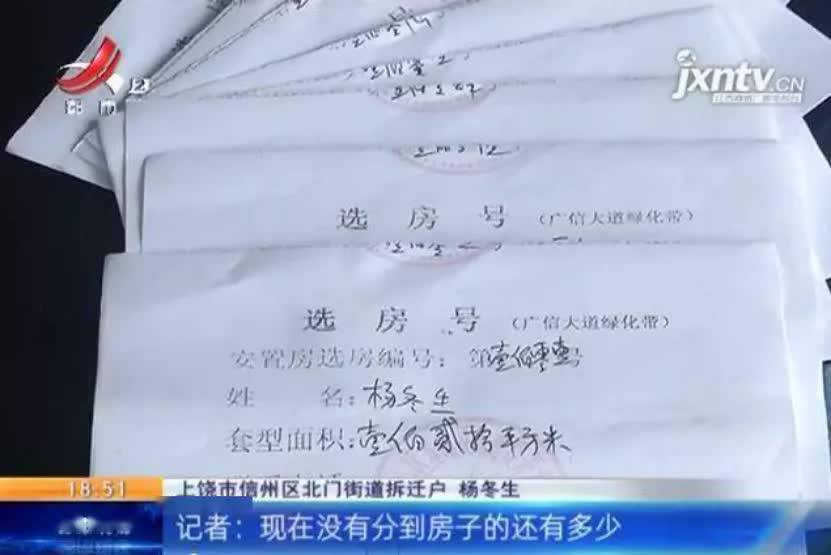 jxntv.CN
选房号（广信大道绿化带）
选房号（广信大道绿化带）
安置房选房编号：第壹佰零壹号
姓名：杨冬生
套型面积：壹佰贰拾平方米
18:51
上饶市信州区北门街道拆迁户 杨冬生
记者：现在没有分到房子的还有多少